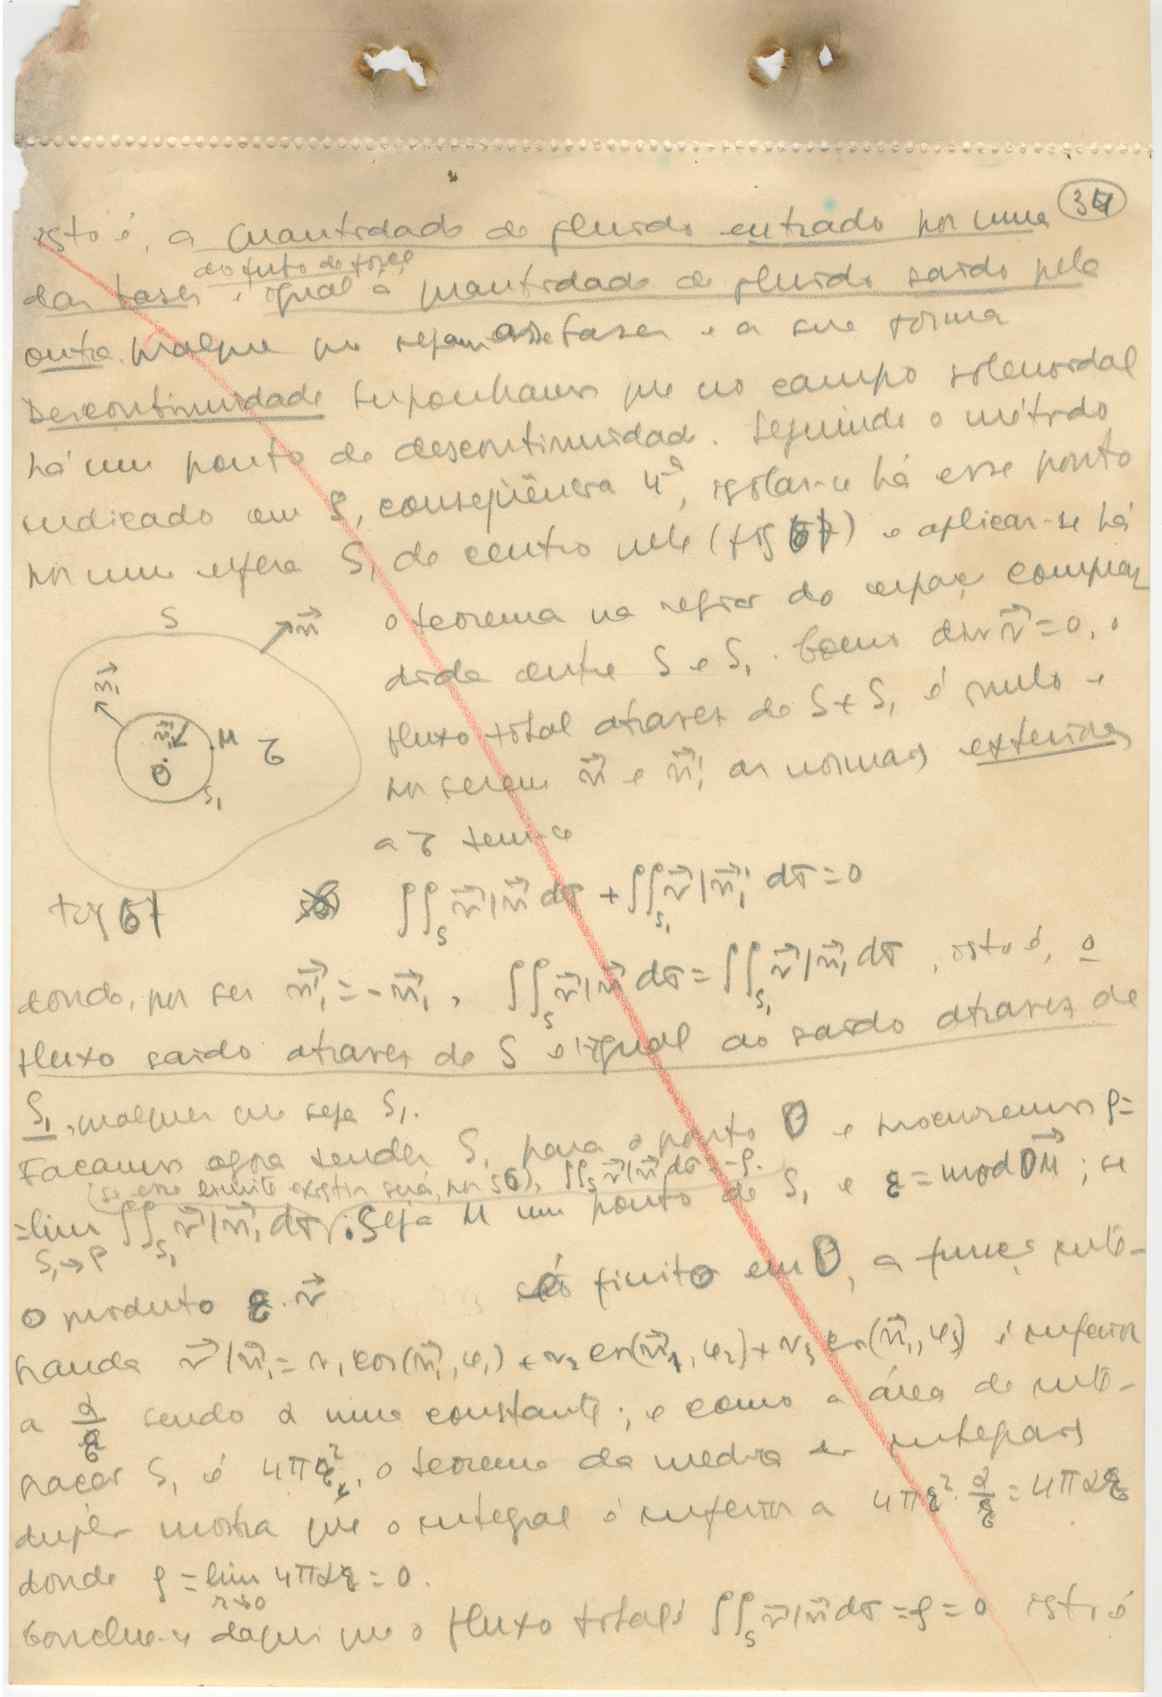 34
isto é, a quantidade de fluido entrado por uma
do tubo de força
das bases é igual à quantidade de fluido saído pela
outra qualquer que sejam as bases e a sua forma
Descontinuidade Suponhamos que no campo solenoidal
há um ponto de descontinuidade. Seguindo o método
indicado em consequência 4ª, isolar-se há esse ponto
por uma esfera S₁ de centro nele (fig 61) e aplicar-se há
o teorema na região do espaço compreen
dida entre S e S₁. Como div v⃗ = 0, o
fluxo total através de S e S₁ é nulo e
por serem n⃗ e n⃗'₁ as normais exteriores
a τ tem-se
S n⃗ n⃗₁ n⃗'₁ M O S₁ τ
fig 61
∫∫_S v⃗|n⃗ dσ + ∫∫_S₁ v⃗|n⃗'₁ dσ = 0
donde, por ser n⃗'₁ = -n⃗₁, ∫∫_S v⃗|n⃗ dσ = ∫∫_S₁ v⃗|n⃗₁ dσ, isto é, o
fluxo saído através de S é igual ao saído através de
S₁, qualquer que seja S₁.
Façamos agora tender S₁ para o ponto O e procuremos ρ=
(se esse limite existir será, por ∫∫_S v⃗|n⃗ dσ = ρ.
= lim_{S₁→P} ∫∫_S₁ v⃗|n⃗₁ dσ. Seja M um ponto de S₁ e r = mod OM⃗; se
o produto r. v⃗ é finito em O, a função inte-
granda v⃗|n⃗₁ = v₁ cos(n⃗₁, φ₁) + v₂ cos(n⃗₁, φ₂) + v₃ cos(n⃗₁, φ₃) é inferior
a α/r sendo α uma constante; e como a área de inte-
gração S₁ é 4πr², o teorema da média integrais
duplos mostra que o integral é inferior a 4πr². α/r = 4παr
donde ρ = lim_{r→0} 4παr = 0.
Conclue-se daqui que o fluxo total é ∫∫_S v⃗|n⃗ dσ = ρ = 0 isto é